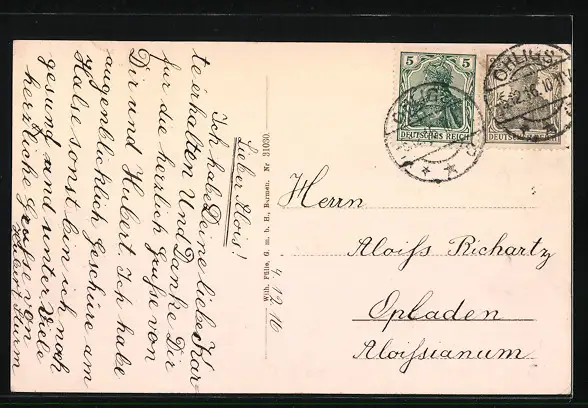 Lieber Alois!
Ich habe Deine liebe Kar
te erhalten Und Danke Dir
für die herzlich Grüße von
Dir und Hubert. Ich habe
augenblicklich Geschüre am
Halse sonst bin ich noch
gesund und unter Viele
herzliche Grüße von
Hubert Sturm
Wilh. Fülle, G. m. b. H., Barmen. Nr. 31030.
4.12.16
5 5
DEUTSCHES REICH
DEUTSCHES REICH
OHLIGS
OHLIGS
Herrn
Aloiſs Richartz
Opladen
Aloiſsianum